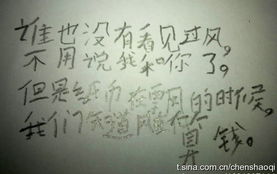 谁也没有看见过风，
不用说我和你了。
但是纸币在刮风的时候，
我们知道风在算
钱。
t.sina.com.cn/chenshaoqi